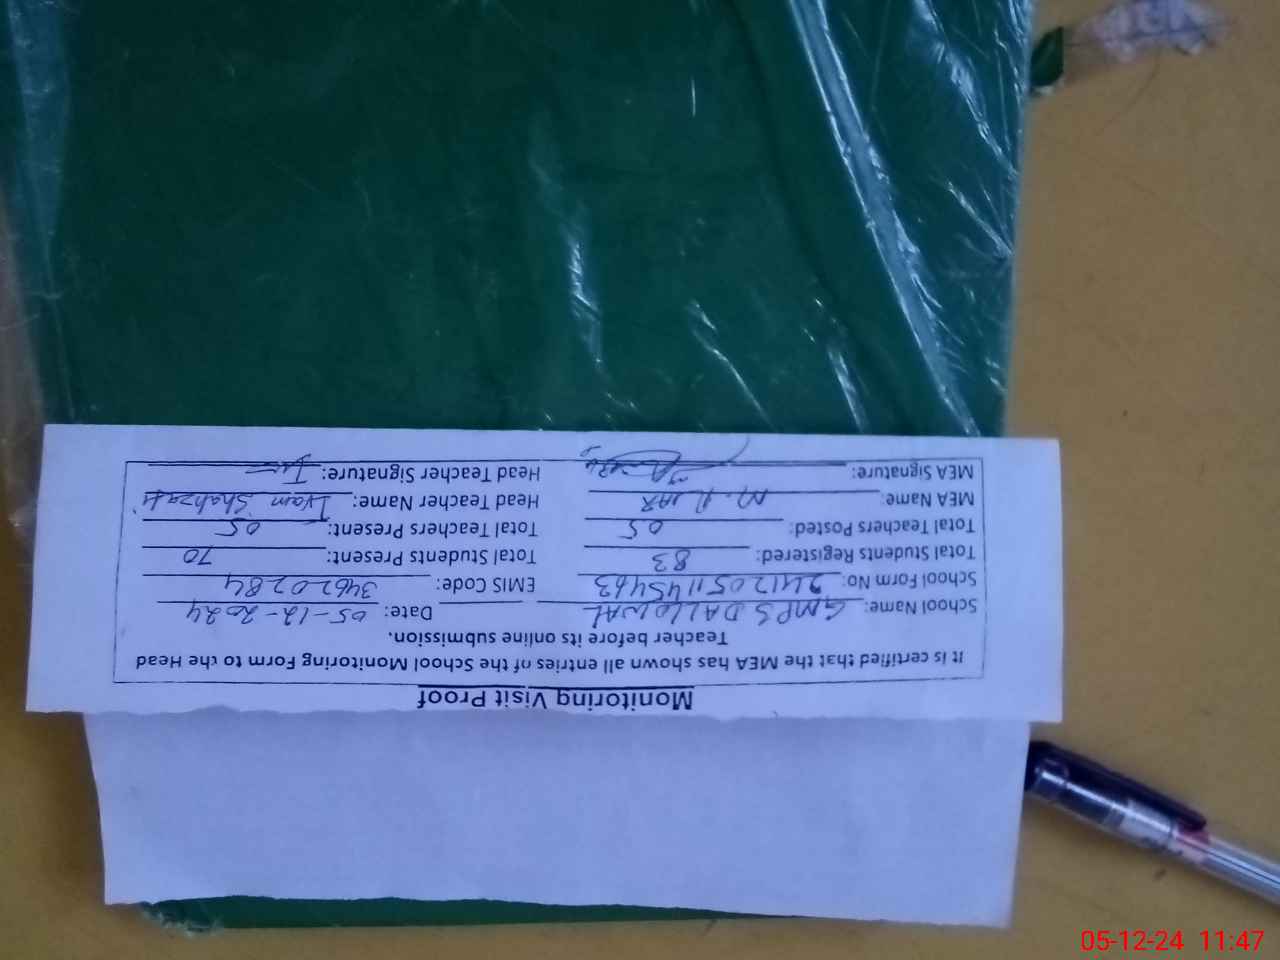 Monitoring Visit Proof
It is certified that the MEA has shown all entries of the School Monitoring Form to the Head
Teacher before its online submission.
School Name: GMPS DALLOWAL Date: 05-12-2024
School Form No: 2412051145463 EMIS Code: 34620284
Total Students Registered: 83 Total Students Present: 70
Total Teachers Posted: 05 Total Teachers Present: 05
MEA Name: M. Head Teacher Name: Iram Shahzadi
MEA Signature: Head Teacher Signature:
05-12-24 11:47